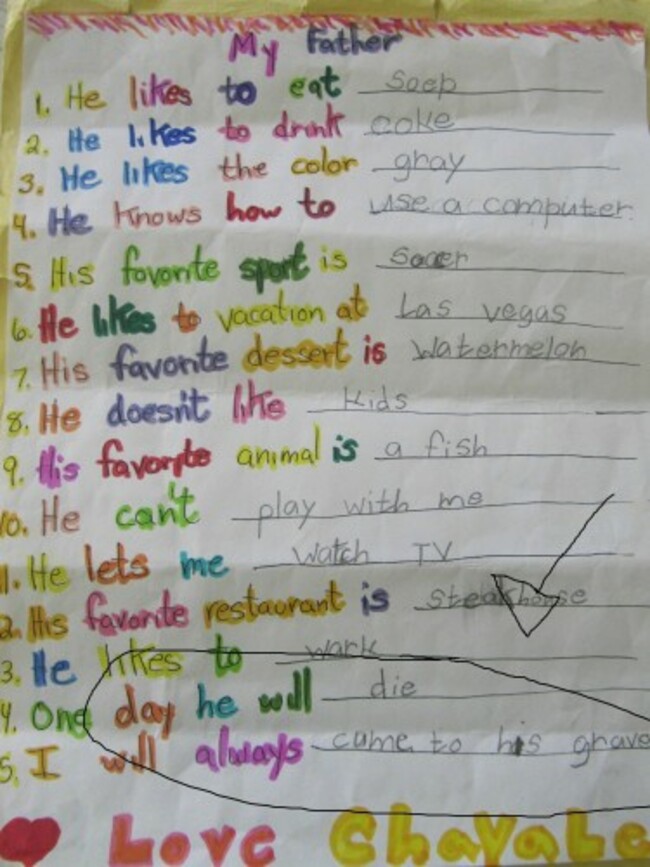 My Father
1. He likes to eat Soep
2. He likes to drink coke
3. He likes the color gray
4. He knows how to use a computer
5. His favorite sport is Soccer
6. He likes to vacation at Las vegas
7. His favorite dessert is Watermelon
8. He doesn't like Kids
9. His favorite animal is a fish
10. He can't play with me
1. He lets me Watch TV
2. His favorite restaurant is Steakhouse
3. He likes to wark
4. One day he will die
5. I will always came to his ghave
Love Chavale